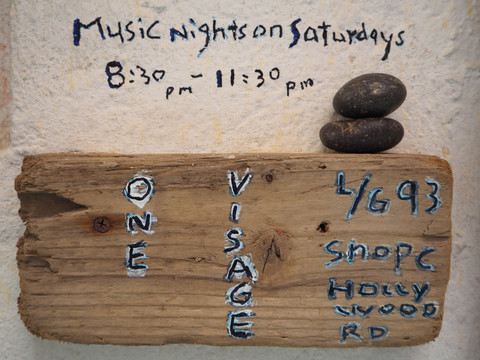 Music Nights on Saturdays
8:30 pm - 11:30 pm
ONE
VISAGE
L/G 93
SHOP C
HOLLY
WOOD
RD